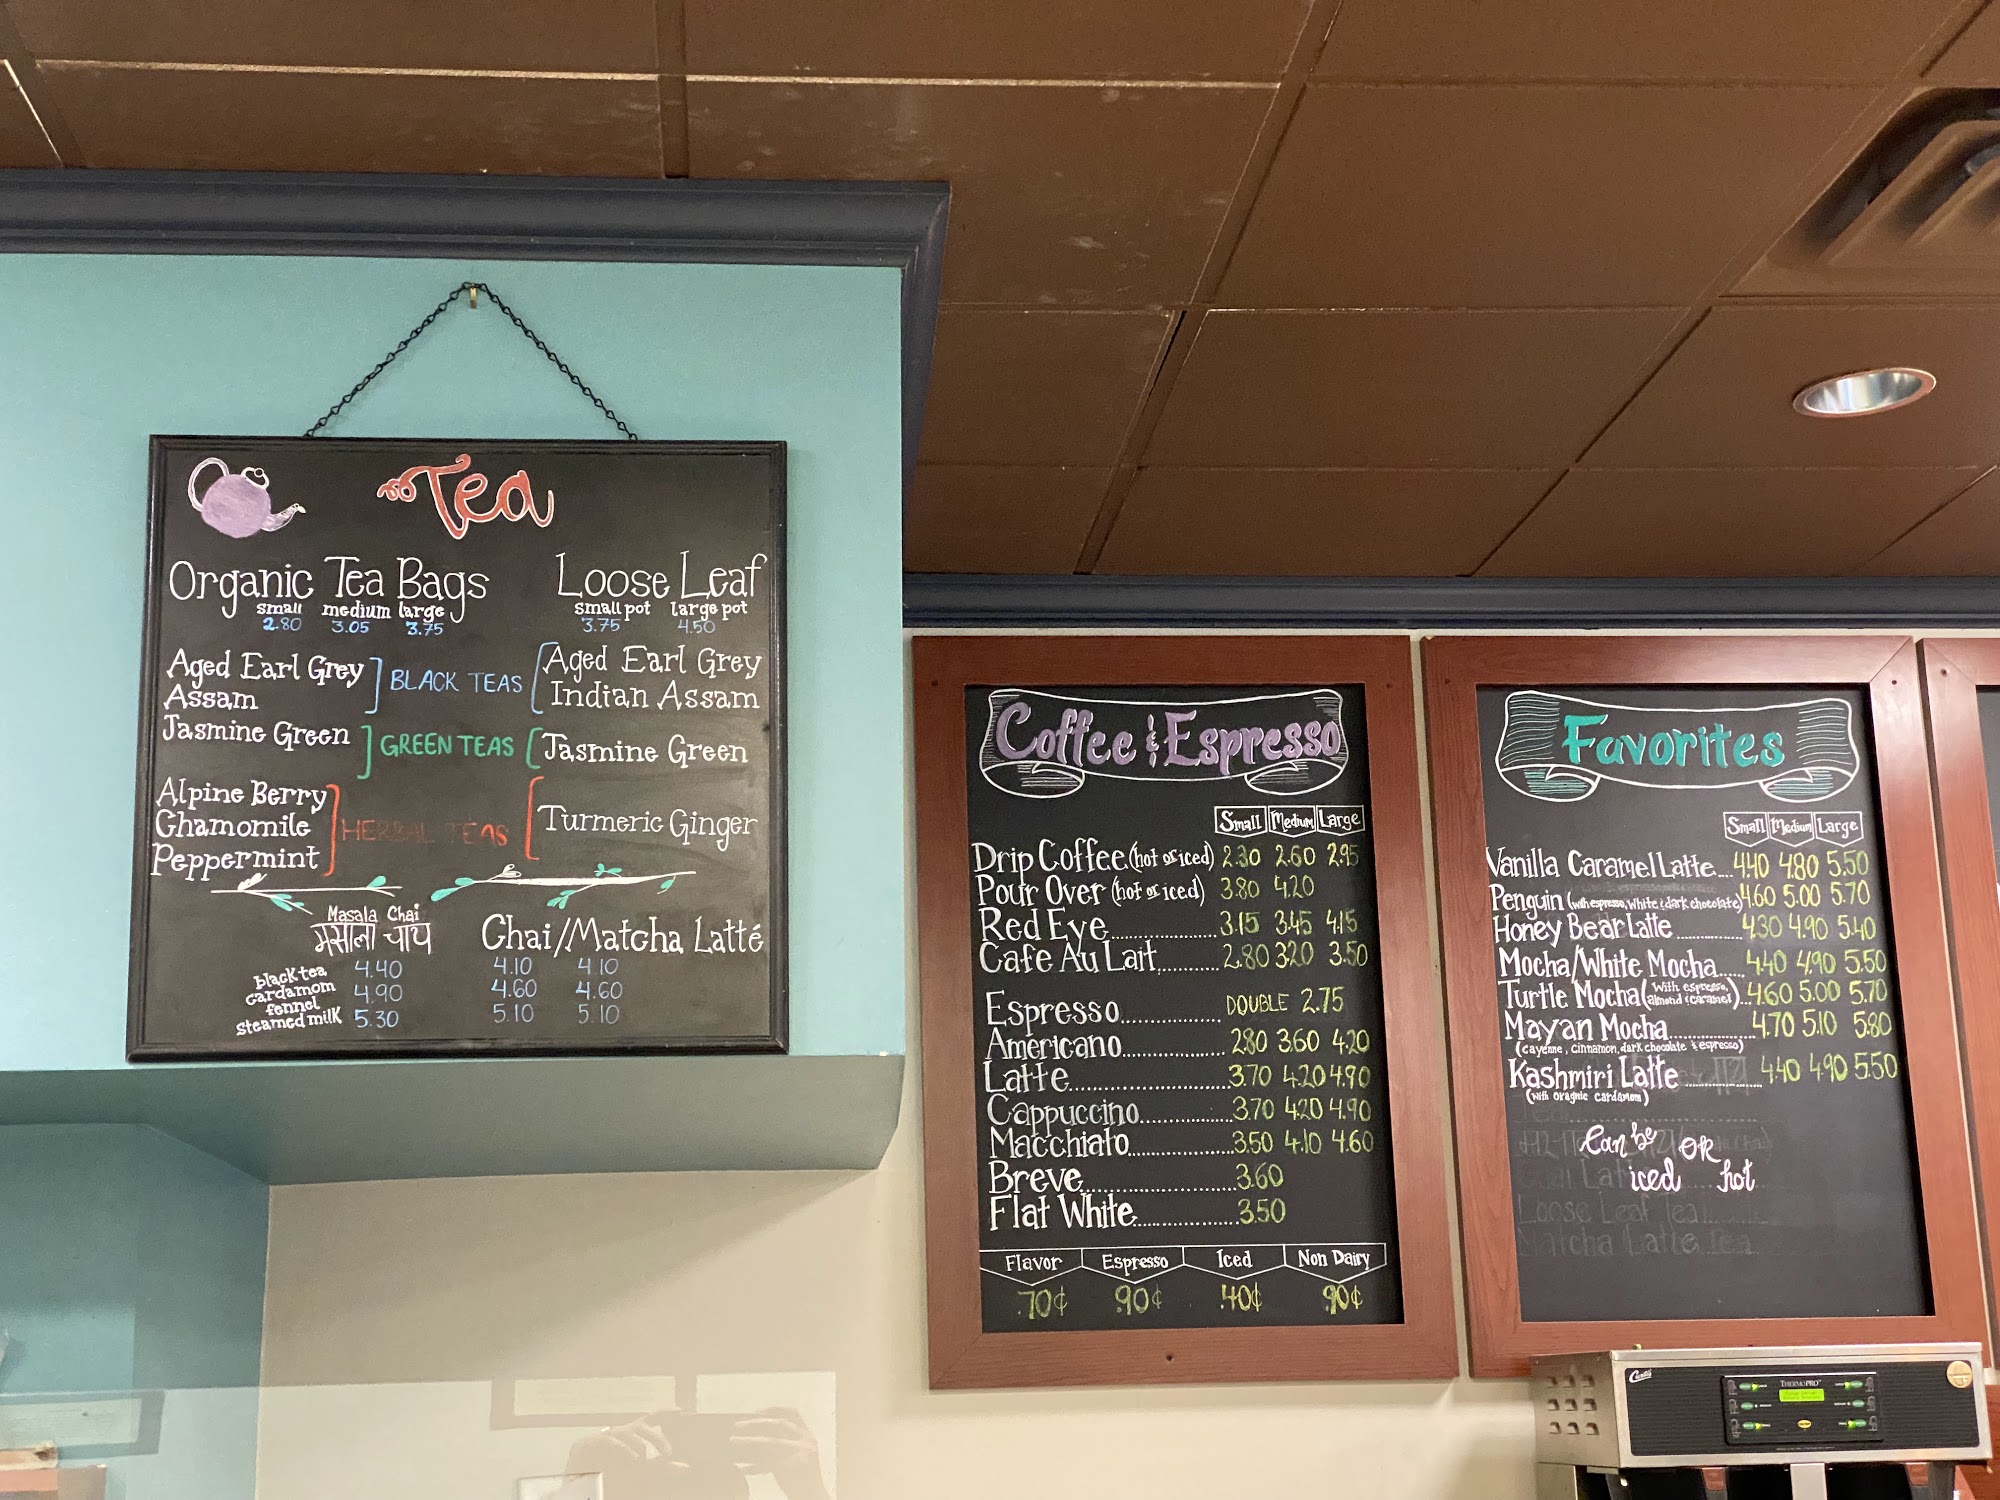 Tea
Organic Tea Bags
small medium large
2.80 3.05 3.75
Loose Leaf
small pot large pot
3.75 4.50
Aged Earl Grey
Assam
BLACK TEAS
Aged Earl Grey
Indian Assam
Jasmine Green
GREEN TEAS
Jasmine Green
Alpine Berry
Chamomile
Peppermint
HERBAL TEAS
Turmeric Ginger
Masala Chai
मसाला चाय
black tea
cardamom
fennel
steamed milk
4.40
4.90
5.30
Chai/Matcha Latté
4.10 4.10
4.60 4.60
5.10 5.10
Coffee & Espresso
Small Medium Large
Drip Coffee (hot or iced) 2.30 2.60 2.95
Pour Over (hot or iced) 3.80 4.20
Red Eye 3.15 3.45 4.15
Cafe Au Lait 2.80 3.20 3.50
Espresso DOUBLE 2.75
Americano 2.80 3.60 4.20
Latte 3.70 4.20 4.90
Cappuccino 3.70 4.20 4.90
Macchiato 3.50 4.10 4.60
Breve 3.60
Flat White 3.50
Flavor Espresso Iced Non Dairy
.70¢ .90¢ .40¢ .90¢
Favorites
Small Medium Large
Vanilla Caramel Latte 4.40 4.80 5.50
Penguin (with espresso, white & dark chocolate) 4.60 5.00 5.70
Honey Bear Latte 4.30 4.90 5.40
Mocha/White Mocha 4.40 4.90 5.50
Turtle Mocha (with espresso, almond & caramel) 4.60 5.00 5.70
Mayan Mocha 4.70 5.10 5.80
(cayenne, cinnamon, dark chocolate & espresso)
Kashmiri Latte 4.40 4.90 5.50
(with oragnic cardamom)
Can be OR
iced hot
Loose Leaf Tea
Matcha Latte Tea
Curtis
THERMOPRO